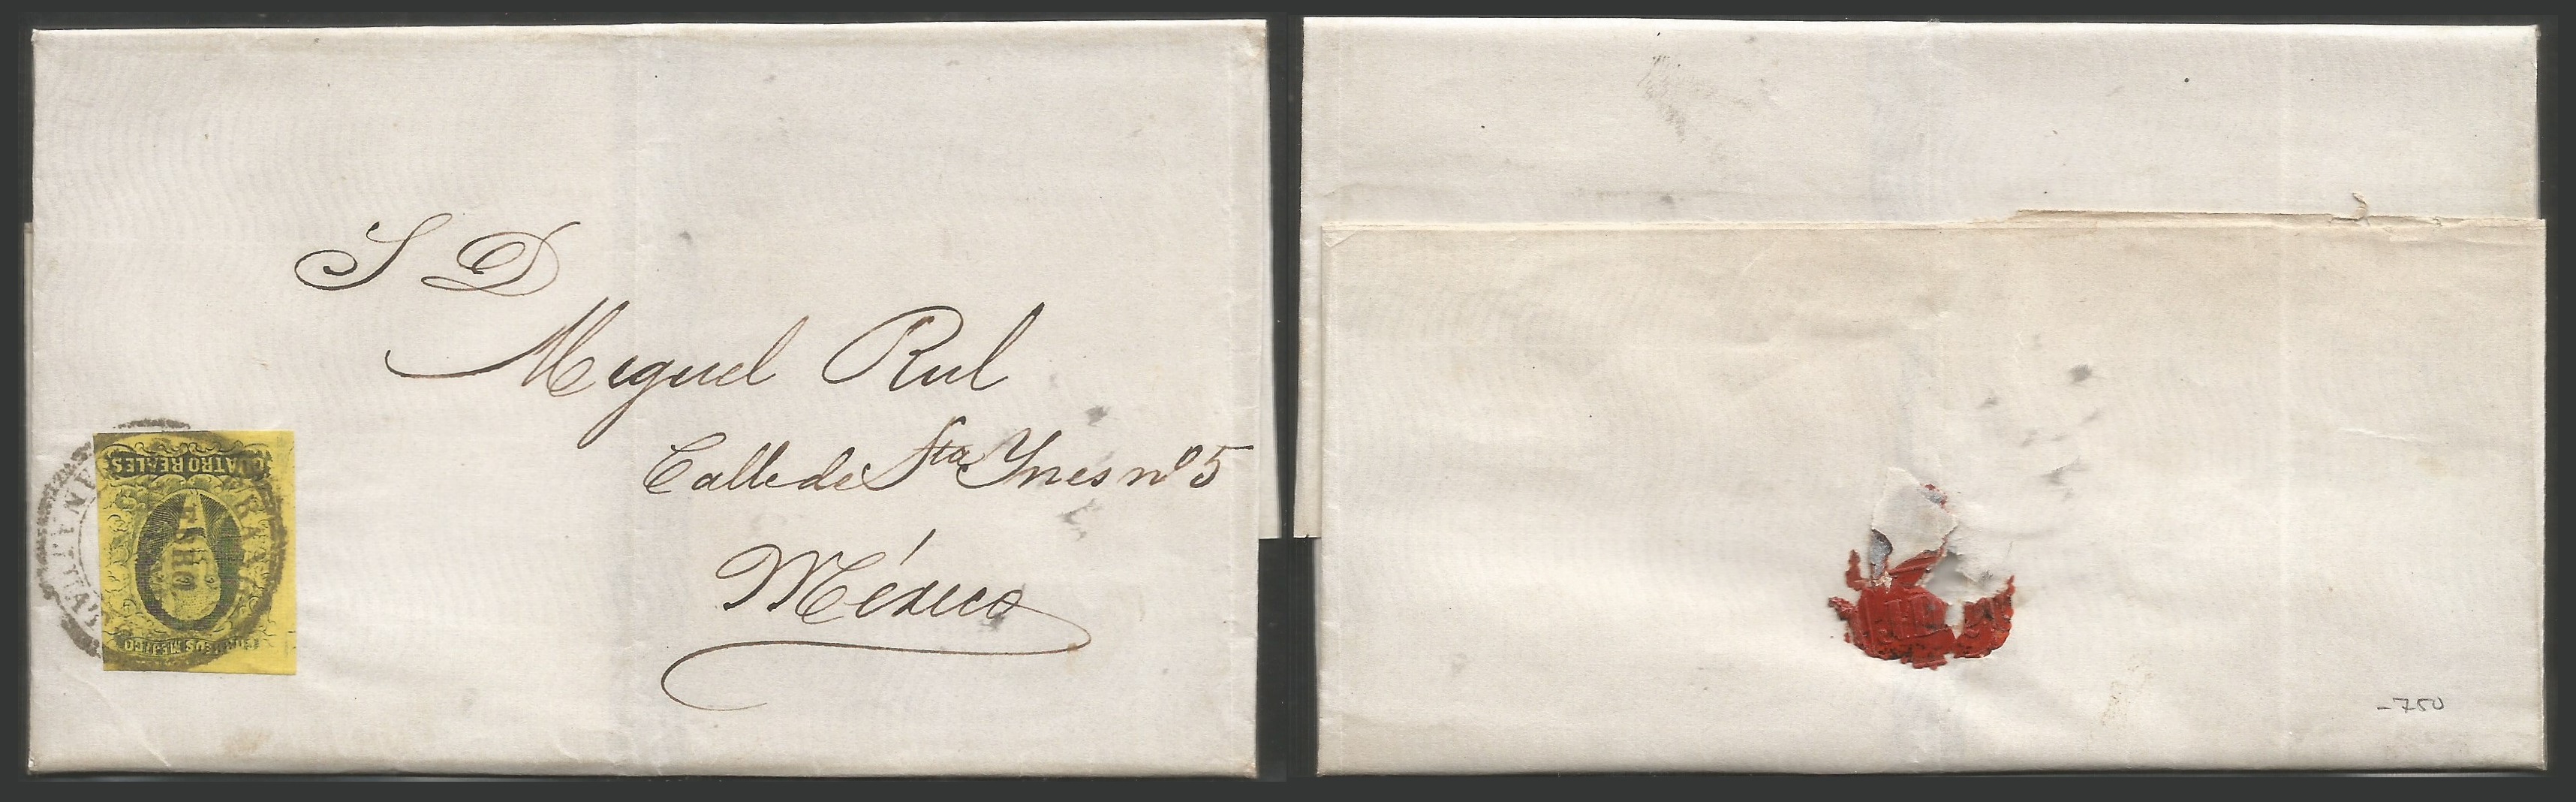 S D
Miguel Rul
Calle de Sta Ynes no 5
México
CUATRO REALES
CORREOS MEJICO
-750